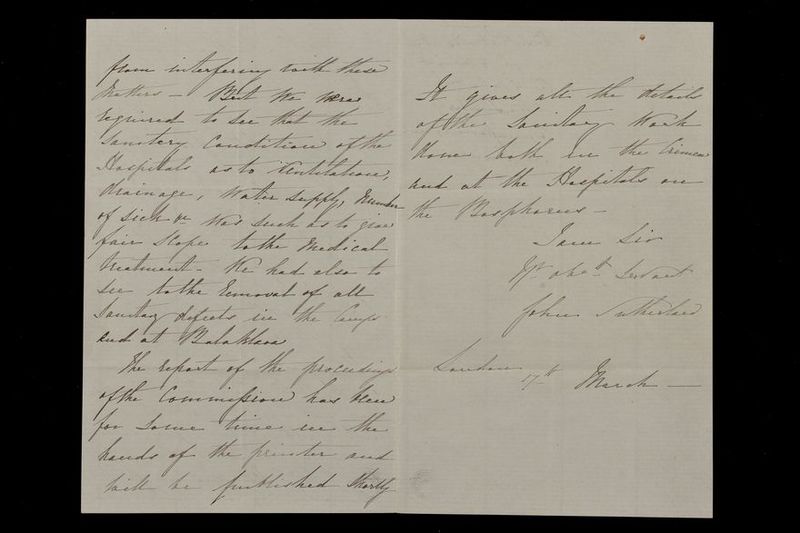 from interfering with these
Matters — But we were
required to see that the
Sanitary Condition of the
Hospitals as to Ventilation,
drainage, Water Supply, Number
of Sick &c was such as to give
fair Scope to the Medical
treatment — We had also to
see to the removal of all
Sanitary defects in the Camps
and at Balaklava
The report of the proceedings
of the Commission has been
for some time in the
hands of the printer and
will be published shortly
It gives all the details
of the Sanitary Work
done both in the Crimea
and at the Hospitals on
the Bosphorus —
I am Sir
Yr obedt Servant
John Sutherland
London
17th March —